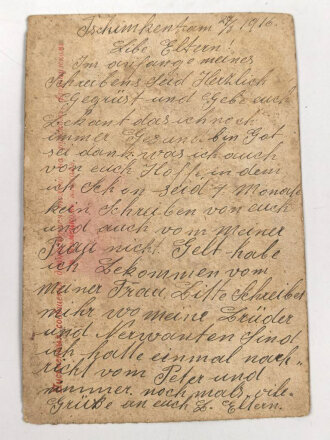 Tschimkent am 21/5 1916.
Libe Eltern!
Im anfange meines
Schreibens Seid Herzlich
Gegrüst und Gebe euch
Bekant das ich noch
immer Gesund bin Got
sei dank was ich auch
von euch Hoffe in dem
ich Schon seid 4 Monate
kein Schreiben von euch
und auch vom meiner
Frau nicht. Gelt habe
ich Bekommen vom
meiner Frau, Bitte Schreibet
mihr wo meine Brüder
und Verwanten Sind
ich hatte einmal nach-
richt vom Peter und
nimmer. noch mals viele
Grüße an euch L. Eltern.